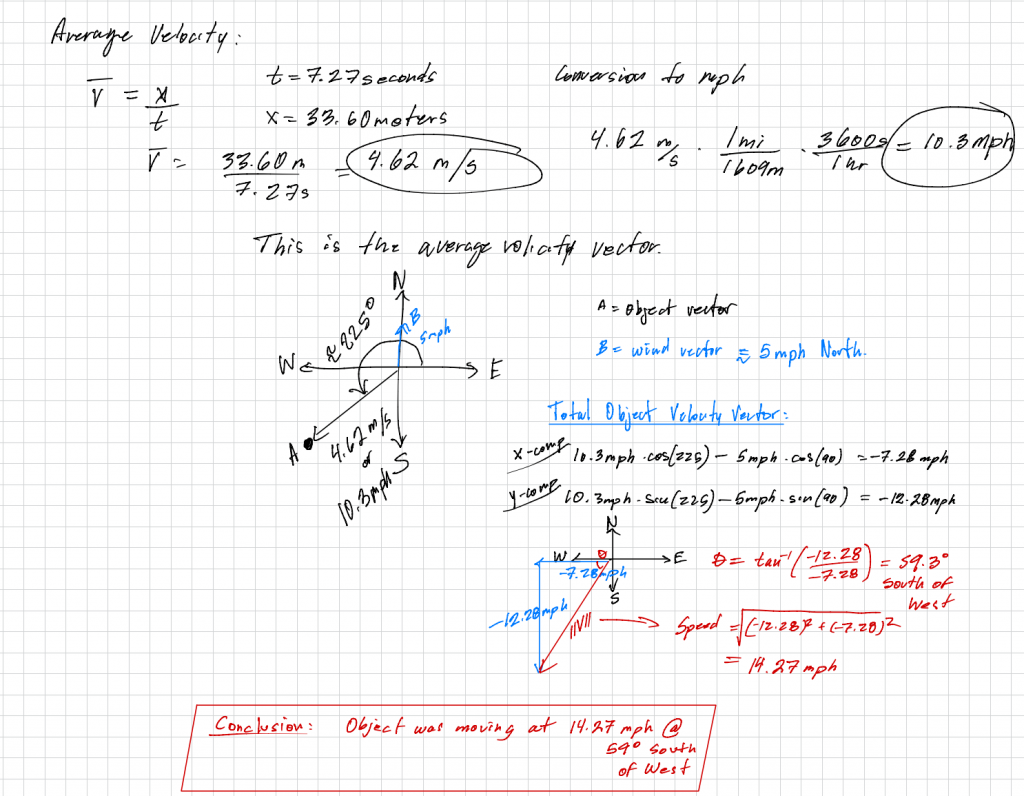 Average Velocity:
t = 7.27 seconds
Conversion to mph
V̅ = x/t
x = 33.60 meters
V̅ = 33.60 m / 7.27 s = 4.62 m/s
4.62 m/s · 1 mi / 1609 m · 3600 s / 1 hr = 10.3 mph
This is the average velicity vector.
N
≈ 225°
B
5mph
W
E
A
4.62 m/s
or
10.3 mph
S
A = object vector
B = wind vector ≈ 5 mph North.
Total Object Velocity Vector:
x-comp 10.3mph · cos(225) – 5mph · cos(90) = -7.28 mph
y-comp 10.3mph · sin(225) – 5mph · sin(90) = -12.28mph
N
W
θ
E
-7.28mph
S
-12.28mph
||V||
θ = tan⁻¹(-12.28 / -7.28) = 59.3°
South of
West
Speed = √(-12.28)² + (-7.28)²
= 14.27 mph
Conclusion: Object was moving at 14.27 mph @
59° South
of West